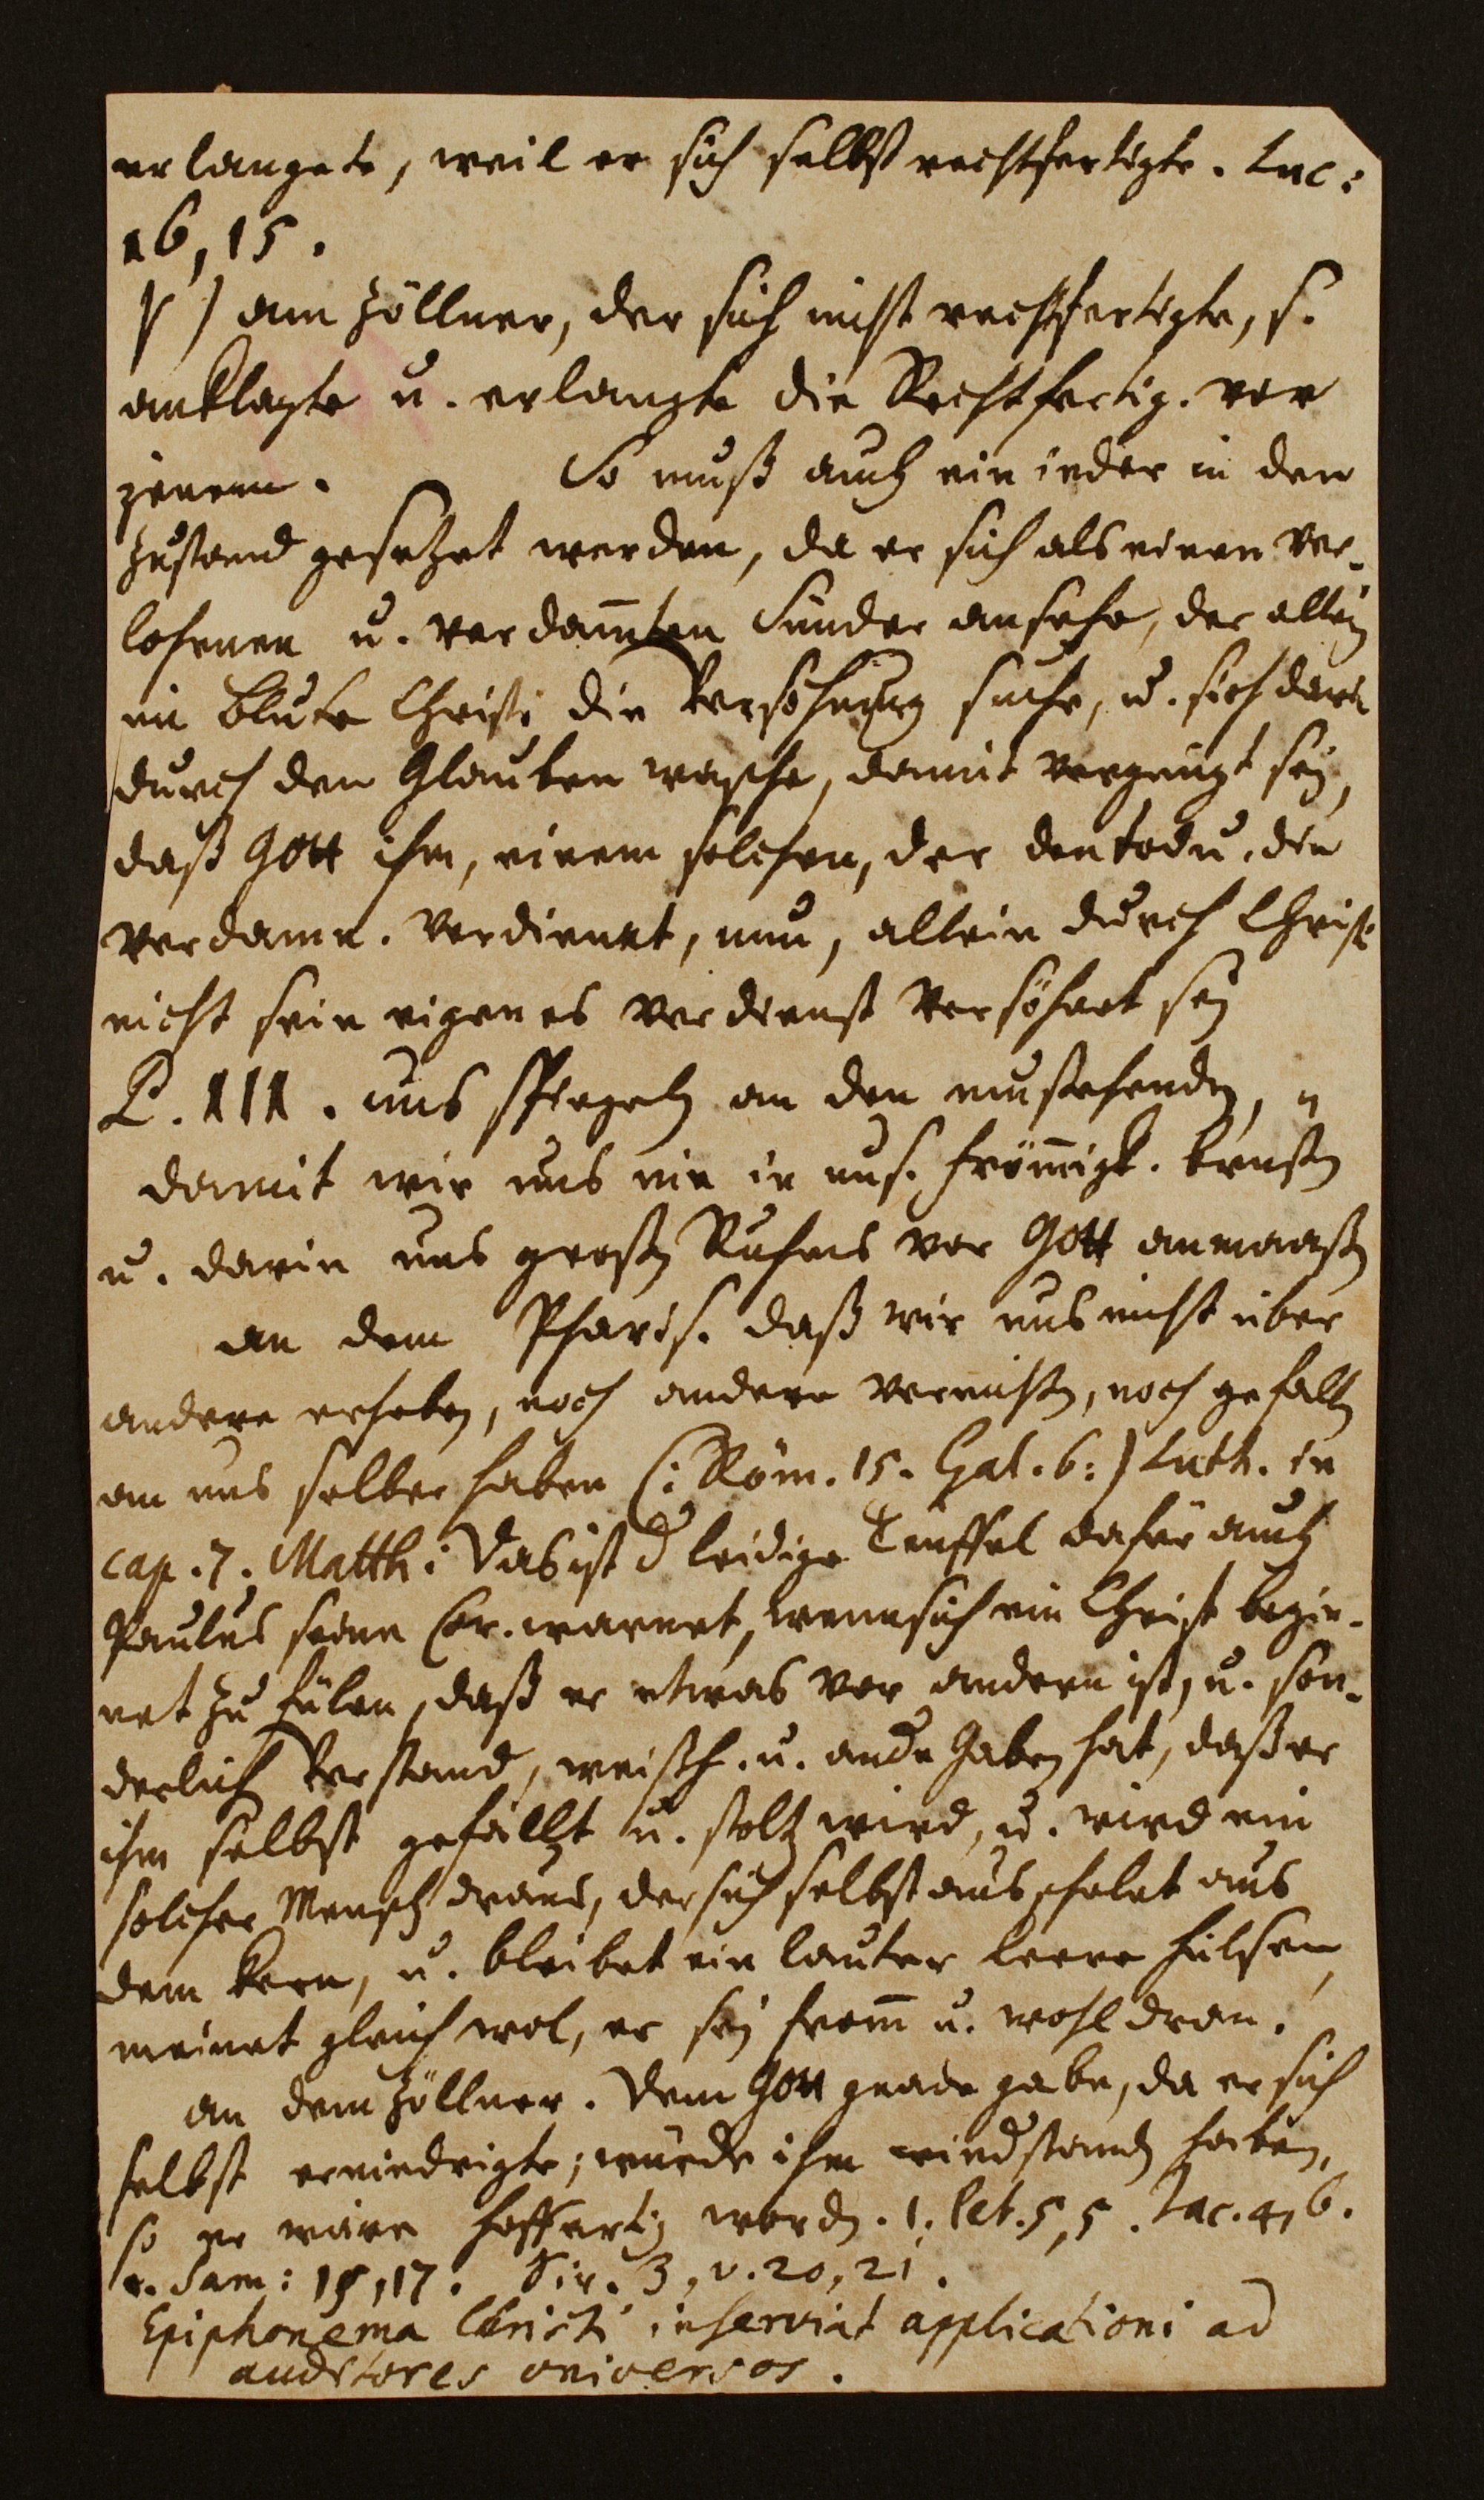 erlangete, weil er sich selbst rechtfertigte. Luc:
16, 15.
β) am Zöllner, der sich nicht rechtfertigte, s.
anklagte u. erlangte die Rechtfertig. vor
jenem. So muß auch ein ieder in den
Zustand gesetzet werden, da er sich als einen ver-
lohrnen u. verdam̅ten Sünder ansehe, der allein
im Blute Christi die Versöhnung suche, u. sich darin
durch den Glauben wasche, damit vergnügt sey,
daß Gott ihm, einem solchen, der den Tod u. die
Verdamn. verdienet, nun, allein durch Christ
nicht sein eigenes Verdienst versöhnet sey
P. III. uns spiegeln an den
damit wir uns nie in uns. Fröm̅igk. brüsten
u. darin uns großen Ruhms vor Gott anmaaßen
an dem Pharis. daß wir uns nicht über
andere erheben, noch andere vernichten, noch gefallen
an uns selber haben (: Röm. 15. Gal. 6:) Luth. in
cap. 7. Matth: Das ist d leidige Teuffel dafür auch
Paulus seine Cor. warnet, wenn sich ein Christ begin-
net zu fülen, daß er etwas vor andern ist, u. son-
derlich Verstand, weißh. u. ande Gaben hat, daß er
ihm selbst gefället u. stoltz wird, u. wird ein
solcher Mensch draus, der sich selbst ausschelet aus
dem Kern, u. bleibet ein lauter leere Hülsen
meinet gleich wol, er sey from̅ u. wohl dran.
an dem Zöllner. Dem Gott gnade gabe, da er sich
selbst erniedrigte; würde ihm wiedstanden haben,
so er wäre hoffartig worden. 1. Pet. 5, 5. Jac. 4, 6.
1. Sam: 15, 17. Sir. 3, v. 20, 21.
Epiphonema Christi inserviat applicationi ad
auditores universos.